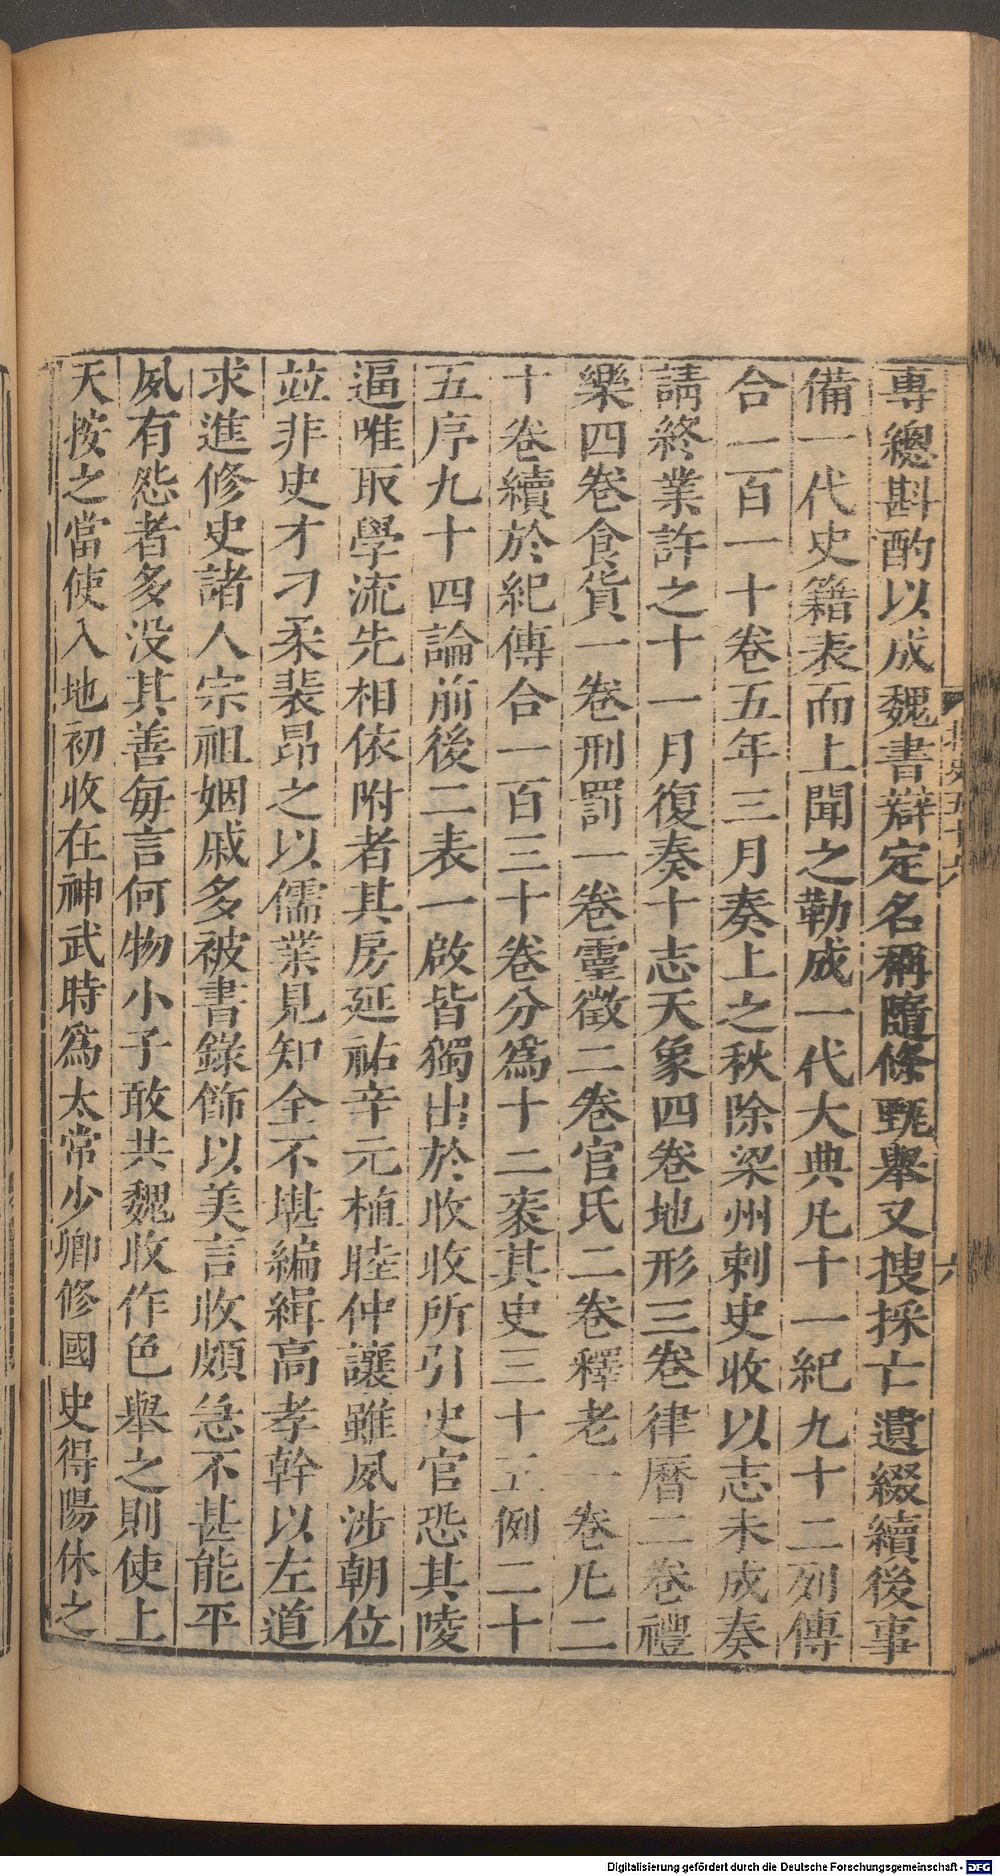 專總斟酌以成魏書辯定名稱隨條甄舉又搜採亡遺綴續後事
備一代史籍表而上聞之勒成一代大典凡十一紀九十二列傳
合一百一十卷五年三月奏上之秋除梁州刺史收以志未成奏
請終業許之十一月復奏十志天象四卷地形三卷律曆二卷禮
樂四卷食貨一卷刑罰一卷靈徵二卷官氏二卷釋老一卷凡二
十卷續於紀傳合一百三十卷分爲十二袠其史三十五例二十
五序九十四論前後二表一啟皆獨出於收收所引史官恐其陵
逼唯取學流先相依附者其房延祐辛元植睦仲讓雖夙涉朝位
並非史才刁柔裴昂之以儒業見知全不堪編緝高孝幹以左道
求進修史諸人宗祖姻戚多被書錄飾以美言收頗急不甚能平
夙有怨者多没其善每言何物小子敢共魏收作色舉之則使上
天按之當使入地初收在神武時爲太常少卿修國史得陽休之
北史五十六
六
Digitalisierung gefördert durch die Deutsche Forschungsgemeinschaft - DFG